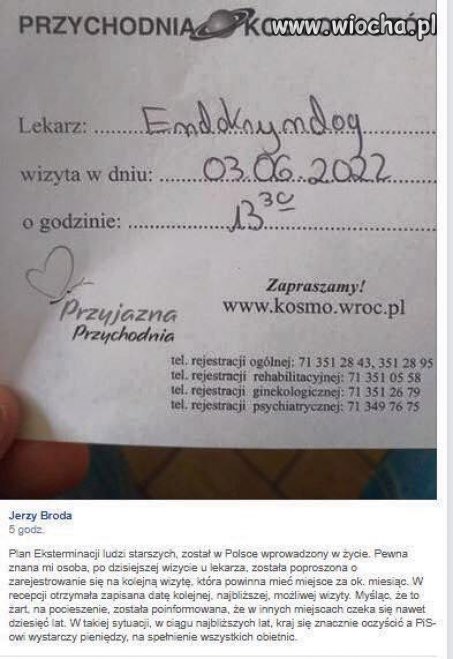 PRZYCHODNIA
www.wiocha.pl
Lekarz: Endokrynolog
wizyta w dniu: 03.06.2022
o godzinie: 13 30
Zapraszamy!
www.kosmo.wroc.pl
Przyjazna
Przychodnia
tel. rejestracji ogólnej: 71 351 28 43, 351 28 95
tel. rejestracji rehabilitacyjnej: 71 351 05 58
tel. rejestracji ginekologicznej: 71 351 26 79
tel. rejestracji psychiatrycznej: 71 349 76 75
Jerzy Broda
5 godz.
Plan Eksterminacji ludzi starszych, został w Polsce wprowadzony w życie. Pewna
znana mi osoba, po dzisiejszej wizycie u lekarza, została poproszona o
zarejestrowanie się na kolejną wizytę, która powinna mieć miejsce za ok. miesiąc. W
recepcji otrzymała zapisana datę kolejnej, najbliższej, możliwej wizyty. Myśląc, że to
żart, na pocieszenie, została poinformowana, że w innych miejscach czeka się nawet
dziesięć lat. W takiej sytuacji, w ciągu najbliższych lat, kraj się znacznie oczyścić a PiS-
owi wystarczy pieniędzy, na spełnienie wszystkich obietnic.